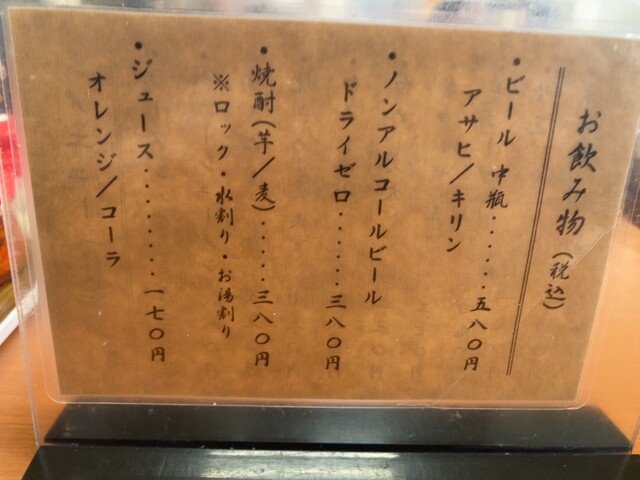 お飲み物（税込）
・ビール 中瓶・・・・・・五八〇円
アサヒ／キリン
・ノンアルコールビール
ドライゼロ・・・・・・三八〇円
・焼酎（芋／麦）・・・・・三八〇円
※ロック・水割り・お湯割り
・ジュース・・・・・・・・・一七〇円
オレンジ／コーラ